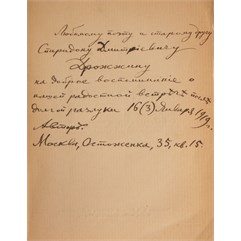 Любимому поэту и старому другу
Спиридону Дмитриевичу
Дрожжину
на доброе воспоминание о
нашей радостной встрече после
долгой разлуки 16(3) Января 1919 г.
Авторъ.
Москва, Остоженка, 35, кв. 15